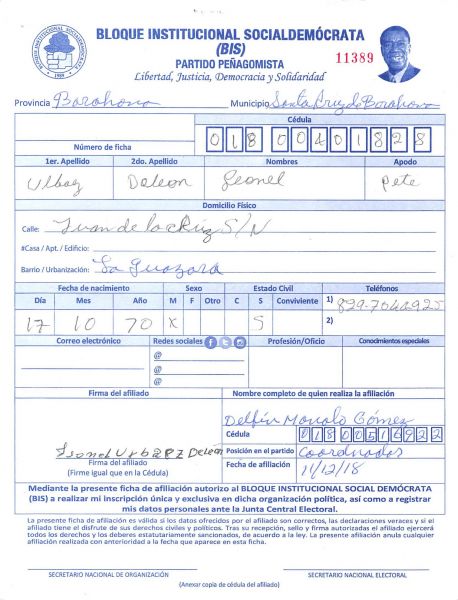 BLOQUE INSTITUCIONAL SOCIALDEMÓCRATA
(BIS)
PARTIDO PEÑAGOMISTA
Libertad, Justicia, Democracia y Solidaridad
11389
BLOQUE INSTITUCIONAL SOCIALDEMOCRATA
1989
Provincia Barahona Municipio Santa Cruz de Barahona
Cédula
Número de ficha 018 0040182 8
1er. Apellido 2do. Apellido Nombres Apodo
Urbaez Deleon Leonel Pete
Domicilio Físico
Calle: Juan de la Cruz S/N
#Casa / Apt. / Edificio:
Barrio / Urbanización: La Guazara
Fecha de nacimiento Sexo Estado Civil Teléfonos
Día Mes Año M F Otro C S Conviviente 1) 829-7062925
17 10 70 X S 2)
Correo electrónico Redes sociales Profesión/Oficio Conocimientos especiales
@
@
@
Firma del afiliado Nombre completo de quien realiza la afiliación
Delfin Manolo Gómez
Cédula
018 0051492 2
Leonel Urbaez Deleon Posición en el partido Coordinador
Firma del afiliado
(Firme igual que en la Cédula) Fecha de afiliación 11/12/18
Mediante la presente ficha de afiliación autorizo al BLOQUE INSTITUCIONAL SOCIAL DEMÓCRATA
(BIS) a realizar mi inscripción única y exclusiva en dicha organización política, así como a registrar
mis datos personales ante la Junta Central Electoral.
La presente ficha de afiliación es válida si los datos ofrecidos por el afiliado son correctos, las declaraciones veraces y si el
afiliado tiene el disfrute de sus derechos civiles y políticos. Tras su recepción, sello y firma autorizadas el afiliado ejercerá
todos los derechos y los deberes estatutariamente sancionados, de acuerdo a la ley. La presente afiliación anula cualquier
afiliación realizada con anterioridad a la fecha que aparece en esta ficha.
SECRETARIO NACIONAL DE ORGANIZACIÓN SECRETARIO NACIONAL ELECTORAL
(Anexar copia de cédula del afiliado)